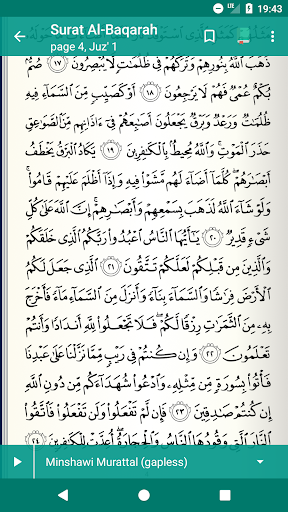 19:43
LTE
Surat Al-Baqarah
page 4, Juz' 1
ذَهَبَ ٱللَّهُ بِنُورِهِمْ وَتَرَكَهُمْ فِى ظُلُمَـٰتٍ لَّا يُبْصِرُونَ ١٧ صُمٌّۢ
بُكْمٌ عُمْىٌ فَهُمْ لَا يَرْجِعُونَ ١٨ أَوْ كَصَيِّبٍ مِّنَ ٱلسَّمَآءِ فِيهِ
ظُلُمَـٰتٌ وَرَعْدٌ وَبَرْقٌ يَجْعَلُونَ أَصَـٰبِعَهُمْ فِىٓ ءَاذَانِهِم مِّنَ ٱلصَّوَٰعِقِ
حَذَرَ ٱلْمَوْتِ ۚ وَٱللَّهُ مُحِيطٌۢ بِٱلْكَـٰفِرِينَ ١٩ يَكَادُ ٱلْبَرْقُ يَخْطَفُ
أَبْصَـٰرَهُمْ ۖ كُلَّمَآ أَضَآءَ لَهُم مَّشَوْا۟ فِيهِ وَإِذَآ أَظْلَمَ عَلَيْهِمْ قَامُوا۟ ۚ
وَلَوْ شَآءَ ٱللَّهُ لَذَهَبَ بِسَمْعِهِمْ وَأَبْصَـٰرِهِمْ ۚ إِنَّ ٱللَّهَ عَلَىٰ كُلِّ
شَىْءٍ قَدِيرٌ ٢٠ يَـٰٓأَيُّهَا ٱلنَّاسُ ٱعْبُدُوا۟ رَبَّكُمُ ٱلَّذِى خَلَقَكُمْ
وَٱلَّذِينَ مِن قَبْلِكُمْ لَعَلَّكُمْ تَتَّقُونَ ٢١ ٱلَّذِى جَعَلَ لَكُمُ
ٱلْأَرْضَ فِرَٰشًا وَٱلسَّمَآءَ بِنَآءً وَأَنزَلَ مِنَ ٱلسَّمَآءِ مَآءً فَأَخْرَجَ
بِهِۦ مِنَ ٱلثَّمَرَٰتِ رِزْقًا لَّكُمْ ۖ فَلَا تَجْعَلُوا۟ لِلَّهِ أَندَادًا وَأَنتُمْ
تَعْلَمُونَ ٢٢ وَإِن كُنتُمْ فِى رَيْبٍ مِّمَّا نَزَّلْنَا عَلَىٰ عَبْدِنَا
فَأْتُوا۟ بِسُورَةٍ مِّن مِّثْلِهِۦ وَٱدْعُوا۟ شُهَدَآءَكُم مِّن دُونِ ٱللَّهِ
إِن كُنتُمْ صَـٰدِقِينَ ٢٣ فَإِن لَّمْ تَفْعَلُوا۟ وَلَن تَفْعَلُوا۟ فَٱتَّقُوا۟
ٱلنَّارَ ٱلَّتِى وَقُودُهَا ٱلنَّاسُ وَٱلْحِجَارَةُ ۖ أُعِدَّتْ لِلْكَـٰفِرِينَ ٢٤
Minshawi Murattal (gapless)